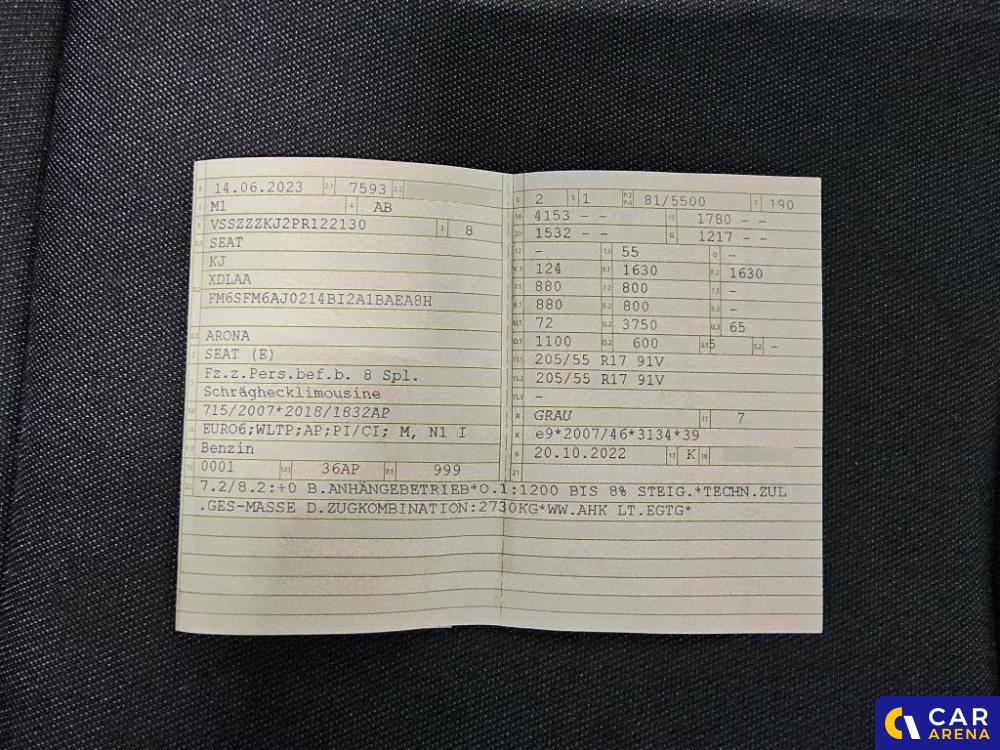 14.06.2023 2.1 7593 2.2
M1 4 AB
VSSZZZKJ2PR122130 3 8
SEAT
KJ
XDLAA
FM6SFM6AJ0214BI2A1BAEA8H
ARONA
SEAT (E)
Fz.z.Pers.bef.b. 8 Spl.
Schräghecklimousine
715/2007*2018/1832AP
EURO6;WLTP;AP;PI/CI; M, N1 I
Benzin
0001 14.1 36AP P.1 999
L 2 9 1 P.2 P.4 81/5500 T 190
18 4153 - - 19 1780 - -
20 1532 - - G 1217 - -
12 - 13 55 Q -
V.7 124 F.1 1630 F.2 1630
7.1 880 7.2 800 7.3 -
8.1 880 8.2 800 8.3 -
U.1 72 U.2 3750 U.3 65
O.1 1100 O.2 600 S.1 5 S.2 -
15.1 205/55 R17 91V
15.2 205/55 R17 91V
15.3 -
R GRAU 11 7
K e9*2007/46*3134*39
6 20.10.2022 17 K 16
21
7.2/8.2:+0 B.ANHÄNGEBETRIEB*O.1:1200 BIS 8% STEIG.*TECHN.ZUL
.GES-MASSE D.ZUGKOMBINATION:2730KG*WW.AHK LT.EGTG*
CAR
ARENA